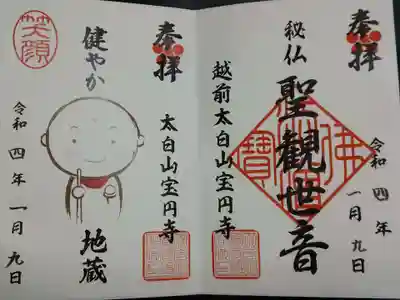 奉拝
秘仏
聖観世音
越前太白山宝円寺
令和四年
一月九日
奉拝
太白山宝円寺
健やか
地蔵
笑顔
令和四年一月九日